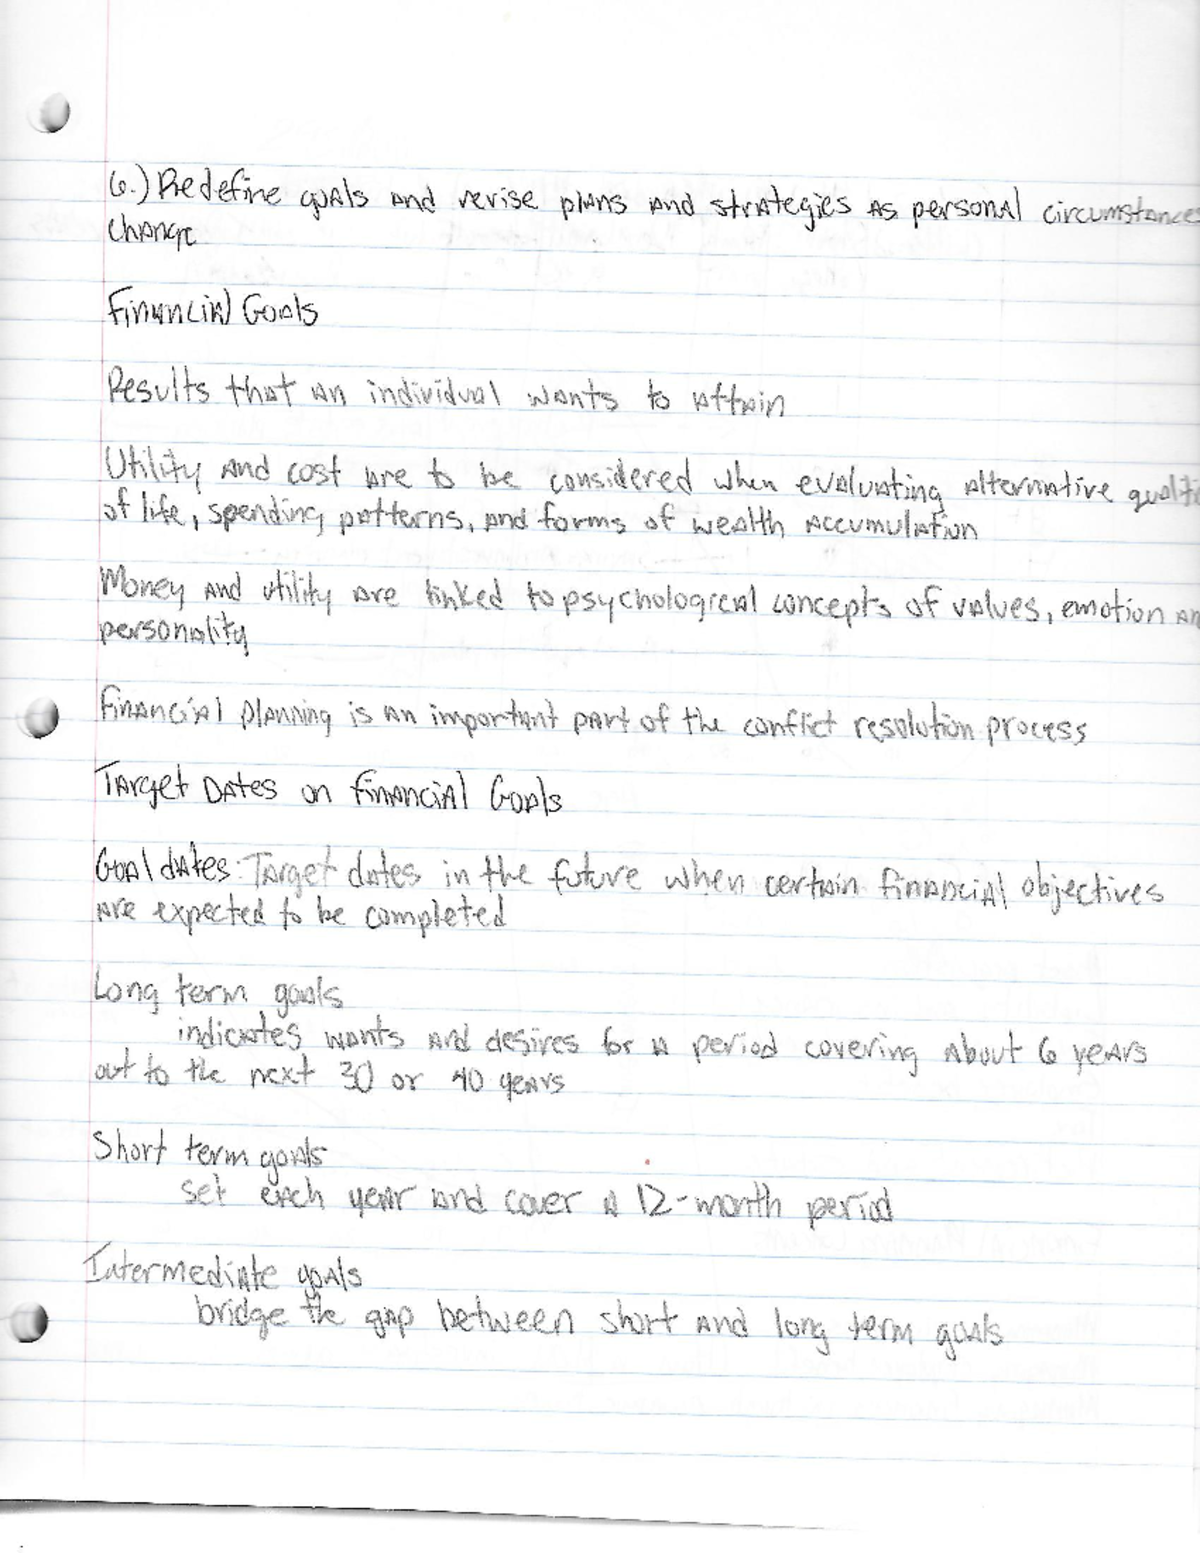 6.) Redefine goals and revise plans and strategies as personal circumstances
change
Financial Goals
Results that an individual wants to attain
Utility and cost are to be considered when evaluating alternative qualti
of life, spending patterns, and forms of wealth accumulation
Money and utility are linked to psychological concepts of values, emotion an
personality
Financial planning is an important part of the conflict resolution process
Target Dates on Financial Goals
Goal dates: Target dates in the future when certain financial objectives
are expected to be completed
Long term goals
indicates wants and desires for a period covering about 6 years
out to the next 30 or 40 years
Short term goals
set each year and cover a 12-month period
Intermediate goals
bridge the gap between short and long term goals